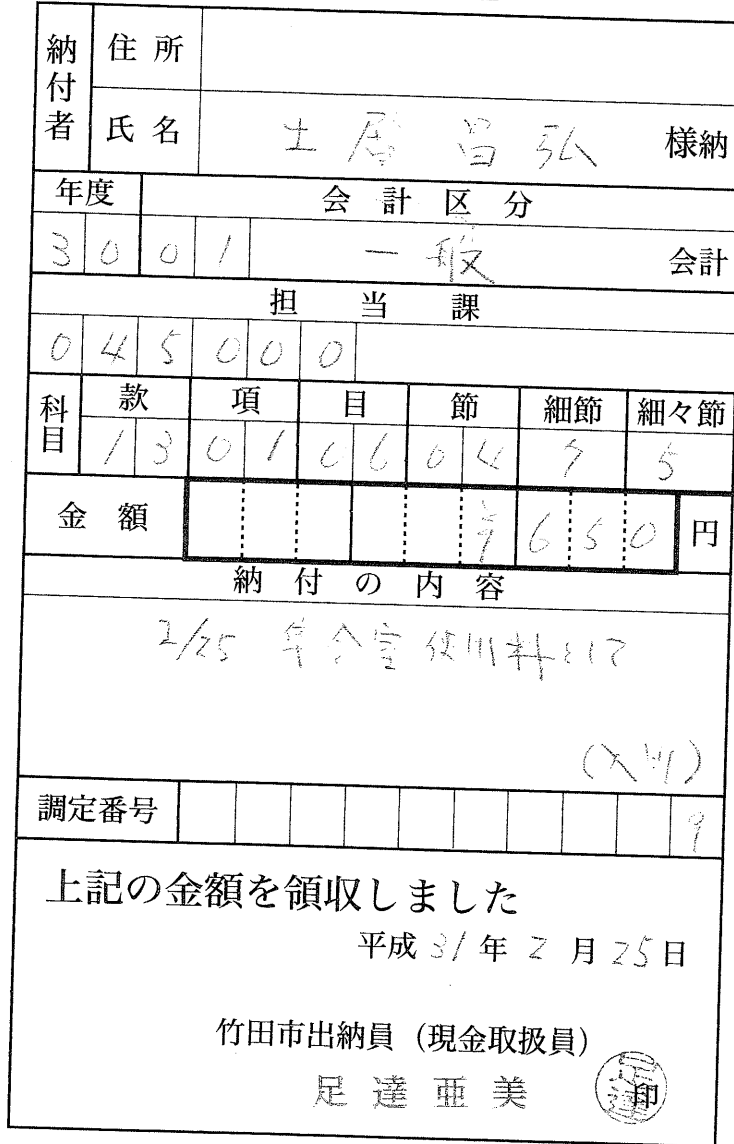 納付者
住所
氏名 土居昌弘 様納
年度 会計区分
3001 一般 会計
担当課
045000
科目 款 項 目 節 細節 細々節
13 01 06 04 7 5
金額 ¥650 円
納付の内容
2/25 集会室使用料として
調定番号 9
上記の金額を領収しました
平成31年2月25日
竹田市出納員(現金取扱員)
足達亜美 印
足達